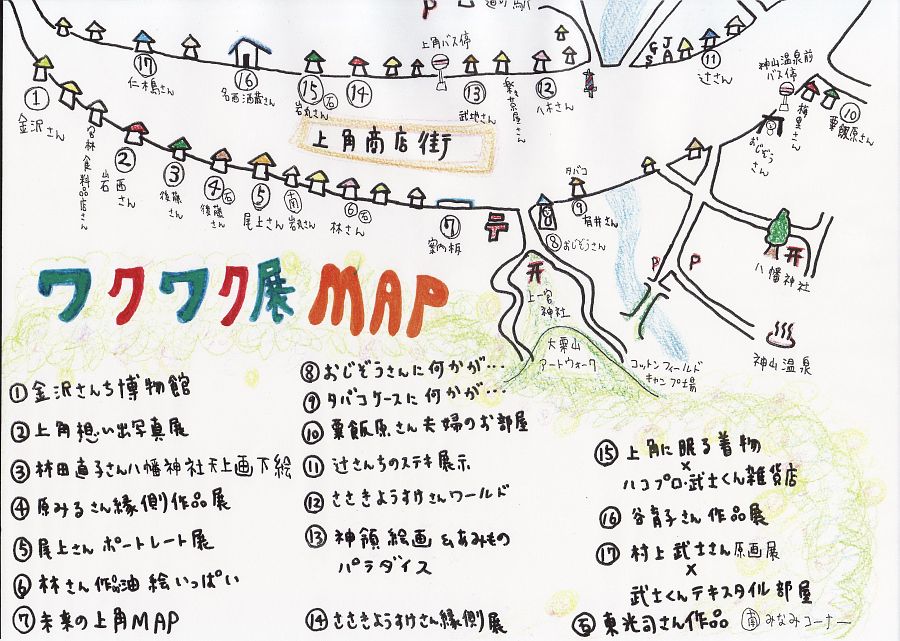 P
上角バス停
JA
⑰
仁木島さん
⑯
名西酒蔵さん
⑮
岩丸さん
石
⑭
⑬
武地さん
⑫
八木さん
⑪
辻さん
神山温泉前
バス停
梅星さん
⑩
粟飯原さん
おじぞうさん
①
金沢さん
名林食料品店さん
②
山西さん
石
③
後藤さん
④
後藤さん
石
⑤
尾上さん
南
岩丸さん
⑥
林さん
石
上角商店街
⑦
案内板
〒
⑧
おじぞうさん
タバコ
⑨
桜井さん
八幡神社
P
P
神山温泉
上一宮
神社
大粟山
アートウォーク
コットンフィールド
キャンプ場
ワクワク展 MAP
① 金沢さんち博物館
② 上角想い出写真展
③ 林田直子さん八幡神社天上画下絵
④ 原みるさん縁側作品展
⑤ 尾上さん ポートレート展
⑥ 林さん作品油絵いっぱい
⑦ 未来の上角MAP
⑧ おじぞうさんに何かが…
⑨ タバコケースに何かが…
⑩ 粟飯原さん夫婦のお部屋
⑪ 辻さんちのステキ展示
⑫ ささきようすけさんワールド
⑬ 神領絵画&あみもの
パラダイス
⑭ ささきようすけさん縁側展
⑮ 上角に眠る着物
×
ハコプロ・武士くん雑貨店
⑯ 谷育子さん作品展
⑰ 村上武士さん原画展
×
武士くんテキスタイル部屋
石 東光司さん作品 南 みなみコーナー